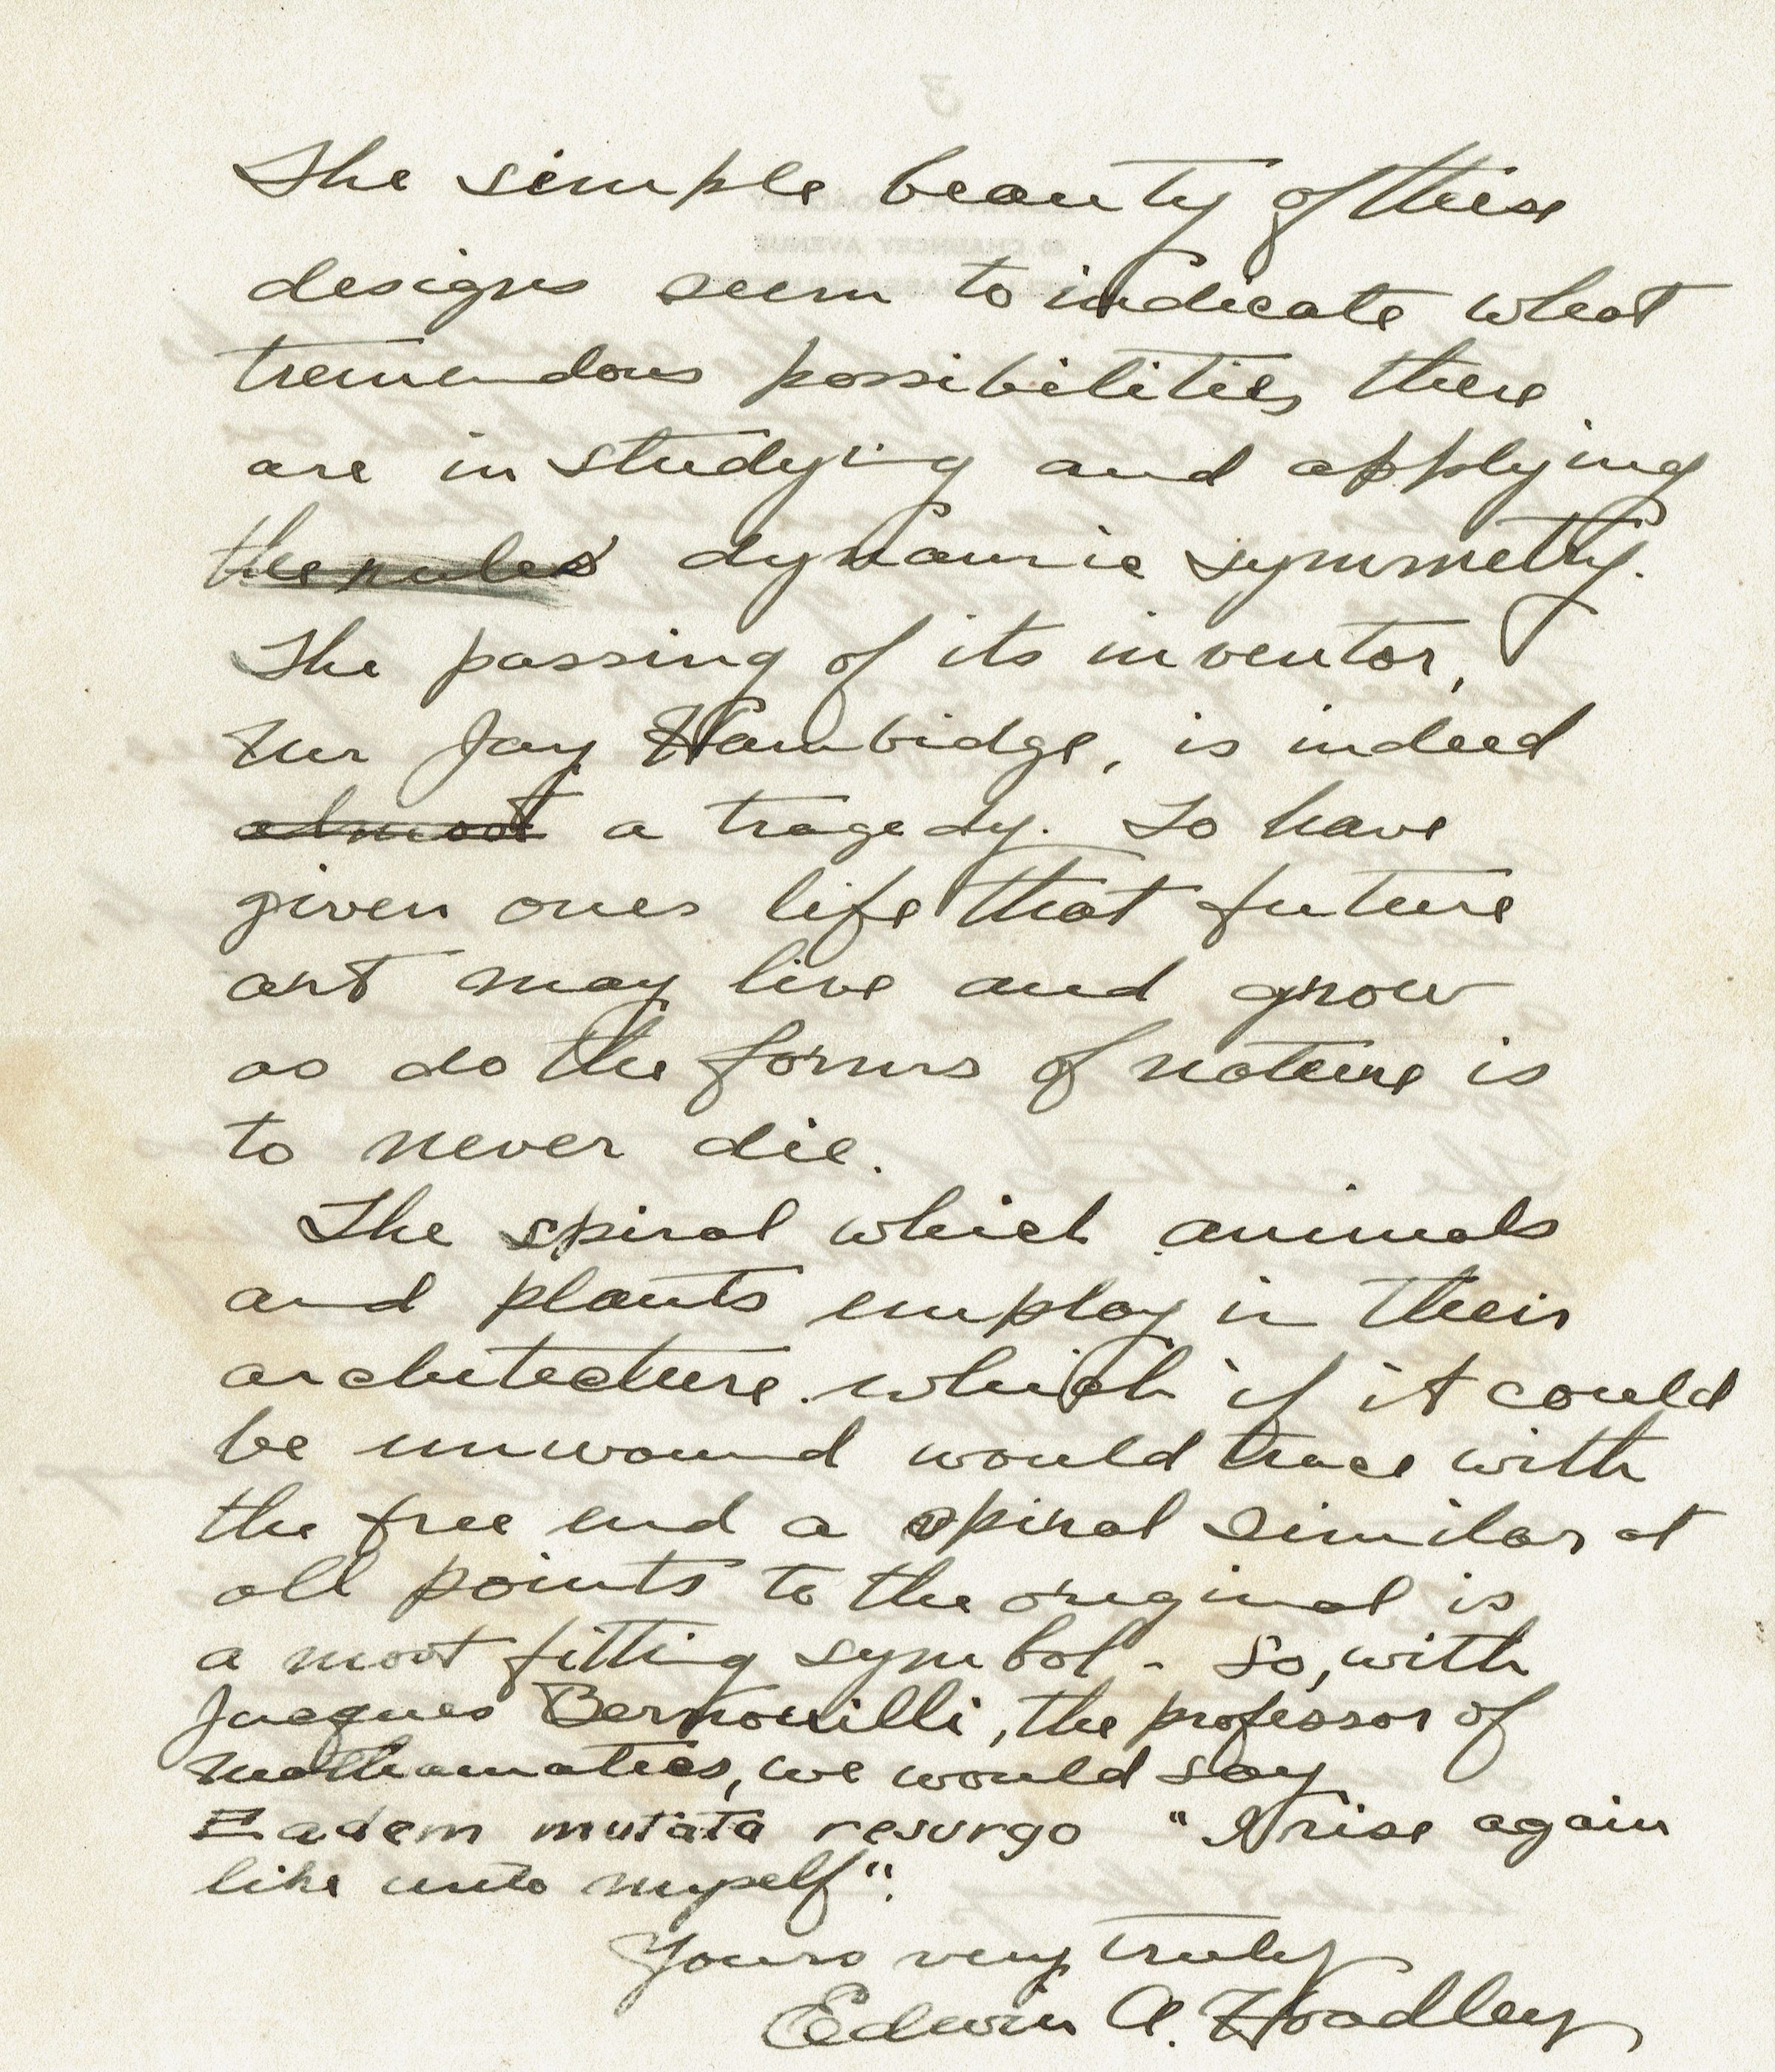 The simple beauty of these
designs seem to indicate what
tremendous possibilities there
are in studying and applying
the rules dynamic symmetry.
The passing of its inventor,
Mr Jay Hambidge, is indeed
almost a tragedy. To have
given ones life that future
art may live and grow
as do the forms of nature is
to never die.
The spiral which animals
and plants employ in their
architecture. which if it could
be unwound would trace with
the free end a spiral similar at
all points to the original is
a most fitting symbol. So, with
Jacques Bernouilli, the professor of
mathamatics, we would say
Eadem mutata resurgo "I rise again
like unto myself".
Yours very truly
Edwin A. Hoadley